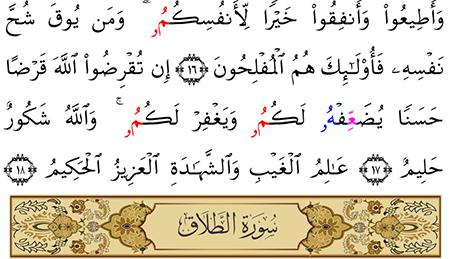 وَأَطِيعُوا۟ وَأَنفِقُوا۟ خَيْرًا لِّأَنفُسِكُمُۥ ۗ وَمَن يُوقَ شُحَّ
نَفْسِهِۦ فَأُو۟لَـٰٓئِكَ هُمُ ٱلْمُفْلِحُونَ ﴿١٦﴾ إِن تُقْرِضُوا۟ ٱللَّهَ قَرْضًا
حَسَنًا يُضَعِّفْهُۥ لَكُمُۥ وَيَغْفِرْ لَكُمُۥ ۚ وَٱللَّهُ شَكُورٌ
حَلِيمٌ ﴿١٧﴾ عَـٰلِمُ ٱلْغَيْبِ وَٱلشَّهَـٰدَةِ ٱلْعَزِيزُ ٱلْحَكِيمُ ﴿١٨﴾
سُورَةُ الطَّلَاقِ